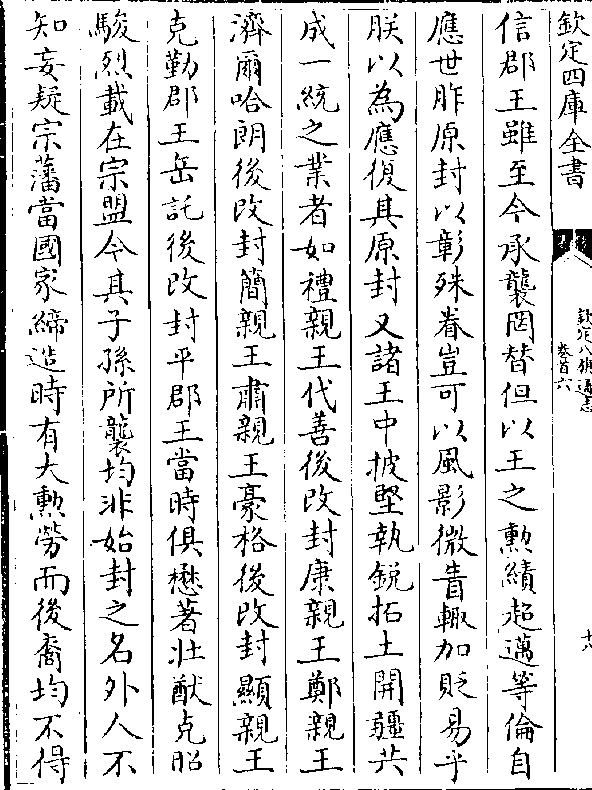 欽定四庫全書
欽定八旗通志
卷首六
十八
信郡王雖至今承襲罔替但以王之勲績超邁等倫自
應世胙原封以彰殊眷豈可以風影微眚輙加貶易乎
朕以為應復其原封又諸王中披堅執銳拓土開疆共
成一統之業者如禮親王代善後改封康親王鄭親王
濟爾哈朗後改封簡親王肅親王豪格後改封顯親王
克勤郡王岳託後改封平郡王當時俱懋著壯猷克昭
駿烈載在宗盟今其子孫所襲均非始封之名外人不
知妄疑宗藩當國家締造時有大勲勞而後裔均不得